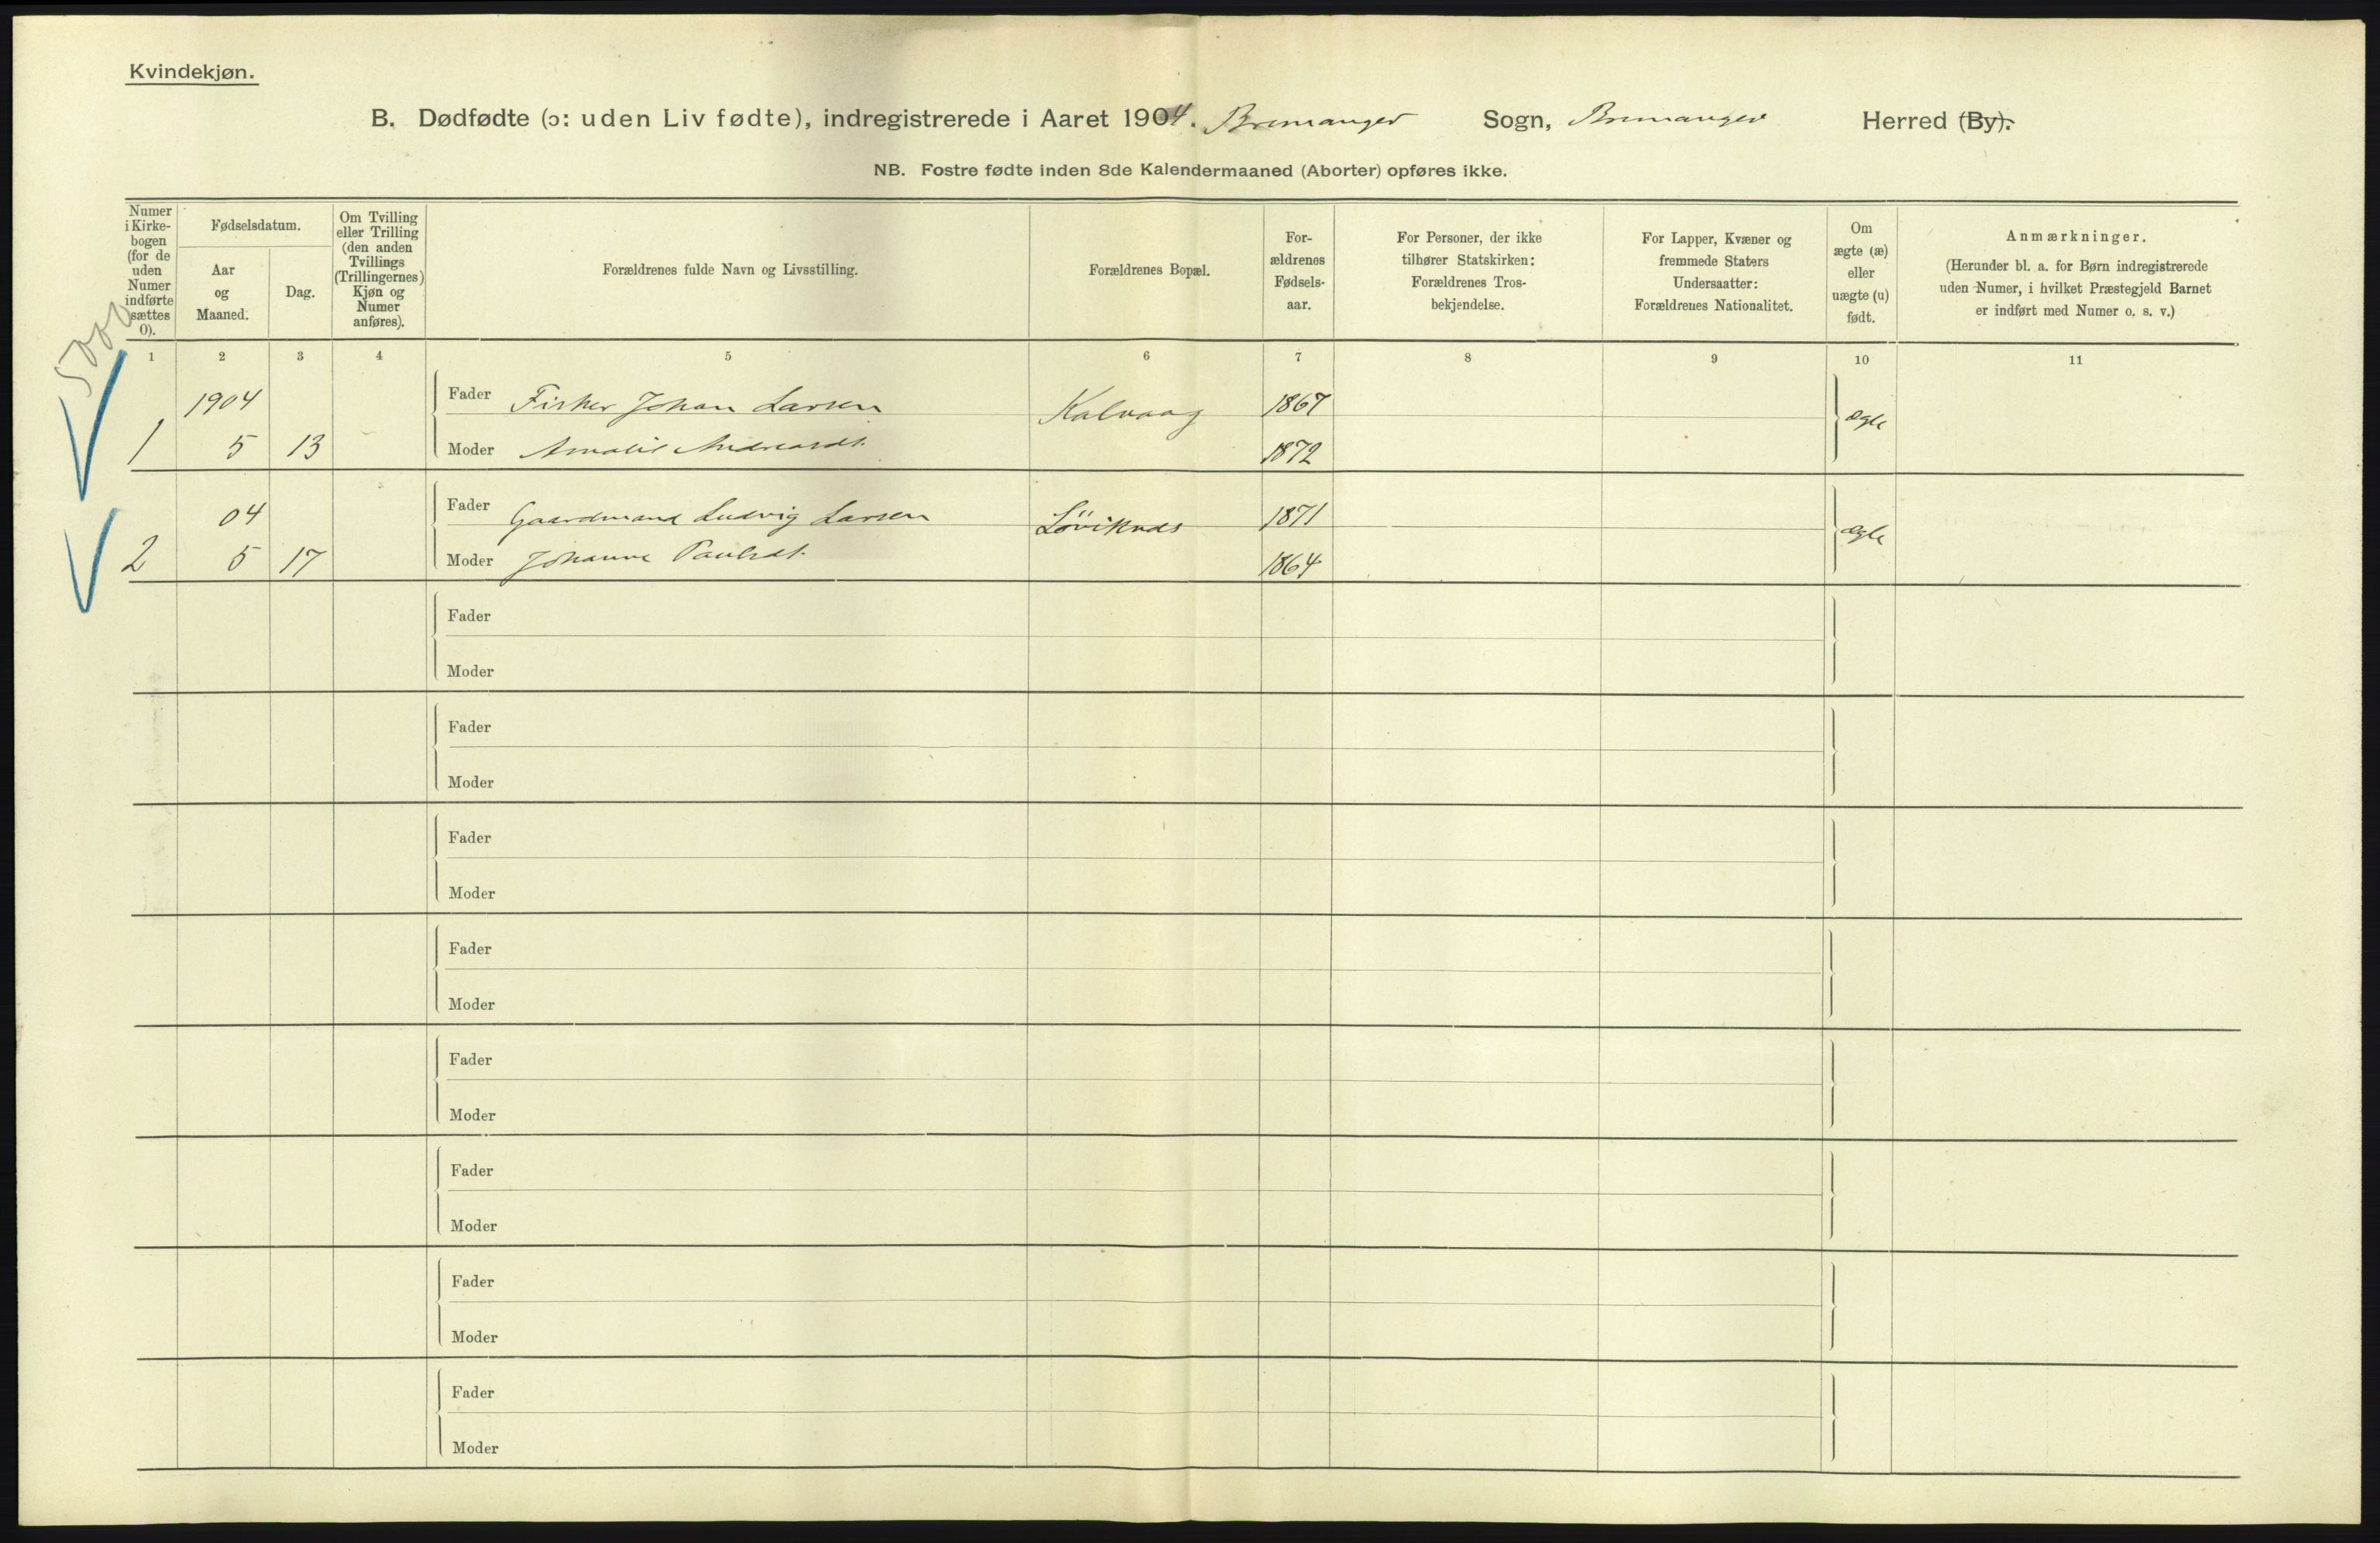 Kvindekjøn.
B. Dødfødte (ɔ: uden Liv fødte), indregistrerede i Aaret 1904. Bremanger Sogn, Bremanger Herred (By).
NB. Fostre fødte inden 8de Kalendermaaned (Aborter) opføres ikke.
Numer i Kirke-bogen (for de uden Numer indførte sættes 0).
Fødselsdatum.
Aar og Maaned.
Dag.
Om Tvilling eller Trilling (den anden Tvillings (Trillingernes) Kjøn og Numer anføres).
Forældrenes fulde Navn og Livsstilling.
Forældrenes Bopæl.
For-ældrenes Fødsels-aar.
For Personer, der ikke tilhører Statskirken: Forældrenes Tros-bekjendelse.
For Lapper, Kvæner og fremmede Staters Undersaatter: Forældrenes Nationalitet.
Om ægte (æ) eller uægte (u) født.
Anmærkninger.
(Herunder bl. a. for Børn indregistrerede uden Numer, i hvilket Præstegjeld Barnet er indført med Numer o. s. v.)
1 2 3 4 5 6 7 8 9 10 11
1904 Fader Fisker Johan Larsen Kalvaag 1867 ægte
1 5 13 Moder Amalie Andreasdt. 1872
04 Fader Gaardmand Ludvig Larsen 1871 ægte
2 5 17 Moder Johanne Paulsdt. 1864
Fader
Moder
Fader
Moder
Fader
Moder
Fader
Moder
Fader
Moder
Fader
Moder
Fader
Moder
Fader
Moder